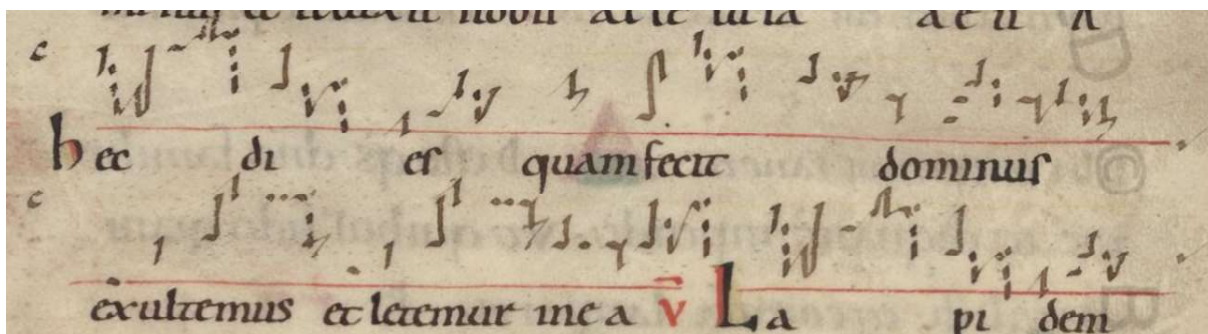 c
hec di es quam fecit dominus
c
exultemus et letemur in ea v La pi dem